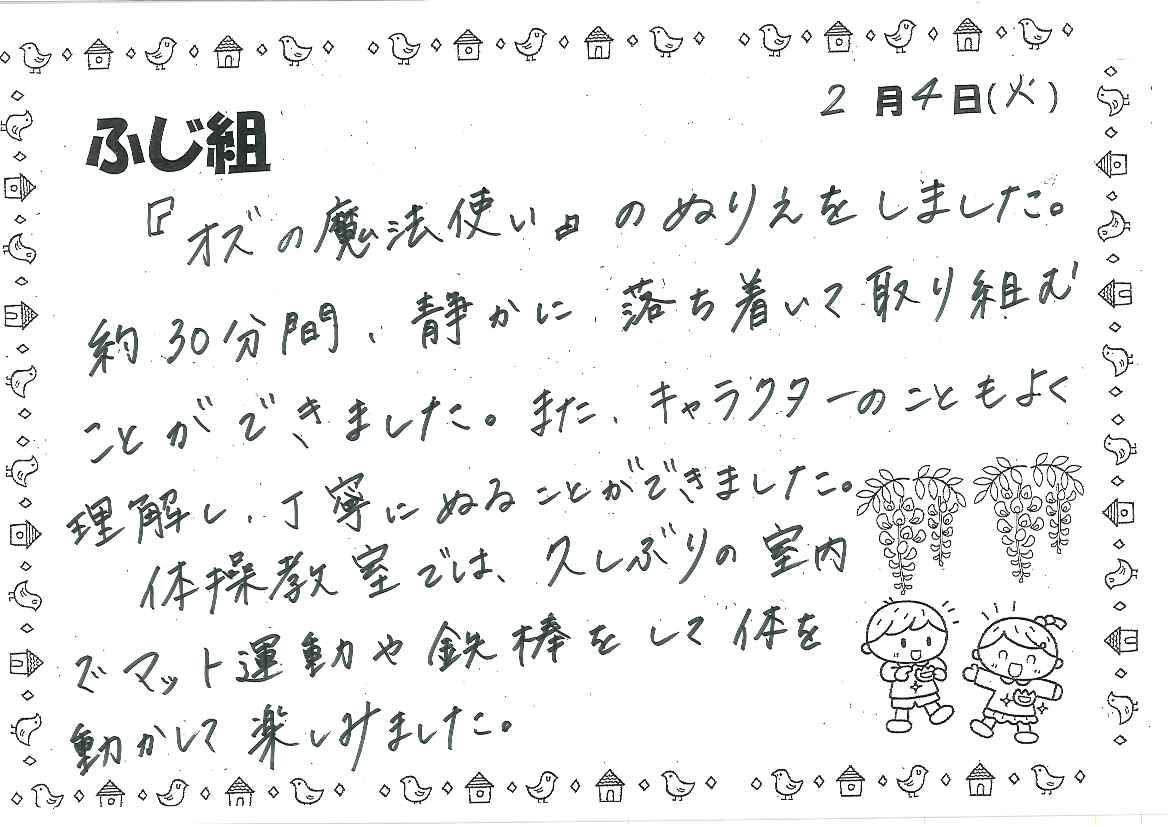 2月4日(火)
ふじ組
『オズの魔法使い』のぬりえをしました。
約30分間、静かに、落ち着いて取り組む
ことができました。また、キャラクターのこともよく
理解し、丁寧にぬることができました。
体操教室では、久しぶりの室内
でマット運動や鉄棒をして体を
動かして楽しみました。